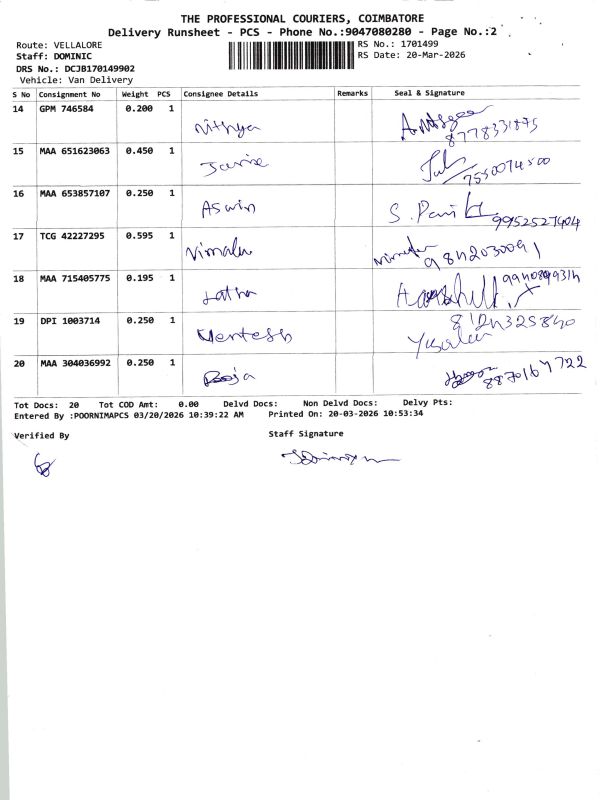 THE PROFESSIONAL COURIERS, COIMBATORE
Delivery Runsheet - PCS - Phone No.:9047080280 - Page No.:2
Route: VELLALORE
RS No.: 1701499
Staff: DOMINIC
RS Date: 20-Mar-2026
DRS No.: DCJB170149902
Vehicle: Van Delivery
S No Consignment No Weight PCS Consignee Details Remarks Seal & Signature
14 GPM 746584 0.200 1 Nithya
8778331875
15 MAA 651623063 0.450 1
7550074500
16 MAA 653857107 0.250 1 Aswin S.
9952527404
17 TCG 42227295 0.595 1 Vimala
18 MAA 715405775 0.195 1 Latha
19 DPI 1003714 0.250 1
20 MAA 304036992 0.250 1 Roja 8870167722
Tot Docs: 20 Tot COD Amt: 0.00 Delvd Docs: Non Delvd Docs: Delvy Pts:
Entered By :POORNIMAPCS 03/20/2026 10:39:22 AM Printed On: 20-03-2026 10:53:34
Verified By Staff Signature